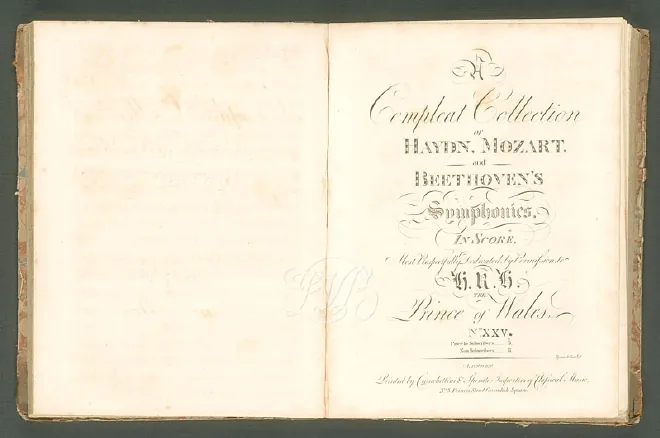 A
Compleat Collection
of
HAYDN, MOZART.
and
BEETHOVEN'S
Symphonies,
IN SCORE.
Most Respectfully Dedicated, by Permission, to
H.R.H.
THE
Prince of Wales.
No. XXV.
Price to Subscribers
Non Subscribers
LONDON
Printed by Cianchettini & Sperati Importers of Classical Music,